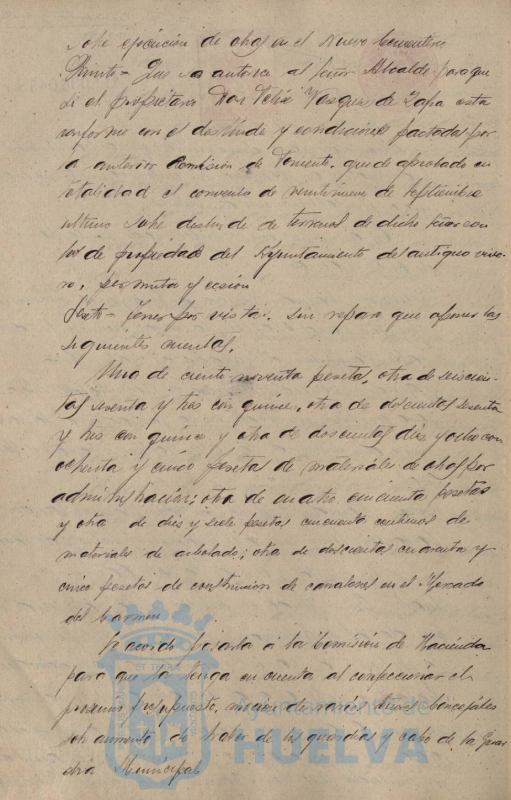 sobre ejecución de obras en el Nuevo Cementerio
Quinto - Que se autorice al Señor Alcalde para que
si el propietario Don Felix Vazquez de Zafra está
conforme con el deslinde y condiciones pactadas por
la anterior Comisión de Fomento, quede aprobado en
totalidad el convenio de veintinueve de Septiembre
último sobre deslinde de terrenos de dicho Señor con
los de propiedad del Ayuntamiento del antiguo vive-
ro, permuta y cesión
Sexto - Tener por vistas, sin reparo que oponer las
siguientes cuentas.
Una de ciento noventa pesetas, otra de seiscien-
tas setenta y tres con quince, otra de doscientas sesenta
y tres con quince y otra de doscientas diez y ocho con
ochenta y cinco pesetas de materiales de obras por
administración; otra de cuatro cincuenta pesetas
y otra de diez y siete pesetas cincuenta centimos de
materiales de arbolado; otra de doscientas cuarenta y
cinco pesetas de construcción de canalones en el Mercado
del Carmen
Se acordó pasarla á la Comisión de Hacienda
para que la tenga en cuenta al confeccionar el
próximo presupuesto, moción de varios señores Concejales
sobre aumento de haber de los guardias y cabo de la Guar
dia Municipal
Ayuntamiento de
HUELVA